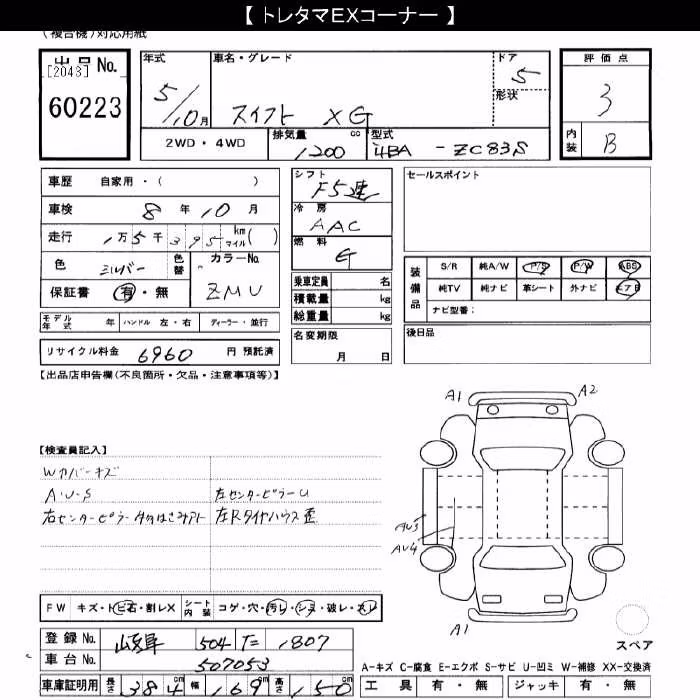 【 トレタマEXコーナー 】
(複合機)対応用紙
出品 No. [2043] 60223
年式 5/10月
車名・グレード スイフト XG
ドア 5
形状
評価点 3
内装 B
2WD・4WD
排気量 1200 cc
型式 4BA - ZC83S
車歴 自家用・( )
車検 8 年 10 月
走行 1万5千395 km マイル ( )
色 シルバー 色替
カラーNo. ZMU
保証書 有・無
シフト F5速
冷房 AAC
燃料 G
乗車定員 名
積載量 kg
総重量 kg
セールスポイント
装備品
S/R 純A/W P/S P/W ABS
純TV 純ナビ 革シート 外ナビ エアB
ナビ型番:
モデル年式 年 ハンドル 左・右 ディーラー・並行
名変期限 月 日
後日品
リサイクル料金 6960 円 預託済
【出品店申告欄(不良箇所・欠品・注意事項等)】
A1 A2
【検査員記入】
Wカバーキズ
A・U・S 左センターピラーU
右センターピラー 左Rタイヤハウス歪
AU3
AU4
A1
FW キズ・トビ石・割レX シート内装 コゲ・穴・汚レ・シミ・破レ・スレ
スペア
登録 No. 504 た 1807
車台 No. 507053
A-キズ C-腐食 E-エクボ S-サビ U-凹ミ W-補修 XX-交換済
車庫証明用 長さ 384 cm 幅 169 cm 高さ 150 cm
工具 有・無 ジャッキ 有・無